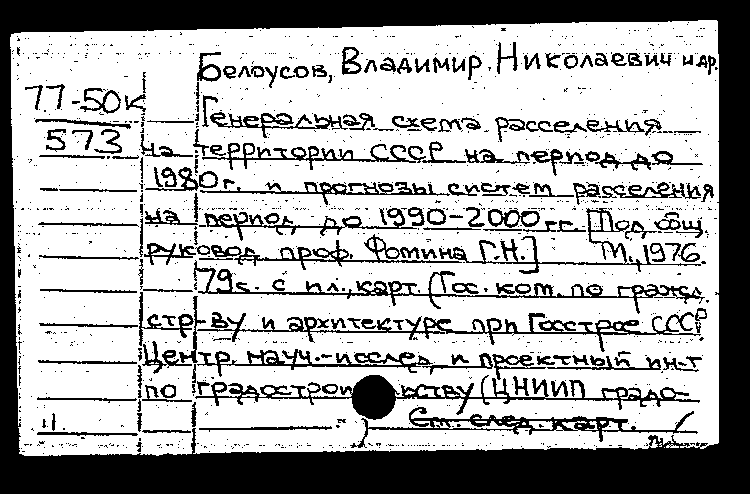 Белоусов, Владимир Николаевич и др.
77-50к
573
Генеральная схема расселения
на территории СССР на период до
1980г. и прогнозы систем расселения
на период до 1990-2000 гг. [Под общ.
руковод. проф. Фомина Г.Н.] М., 1976.
79с. с ил., карт. (Гос. ком. по гражд.
стр-ву и архитектуре при Госстрое СССР
Центр. науч.-исслед. и проектный ин-т
по градостроительству (ЦНИИП градо-
См. след. карт.